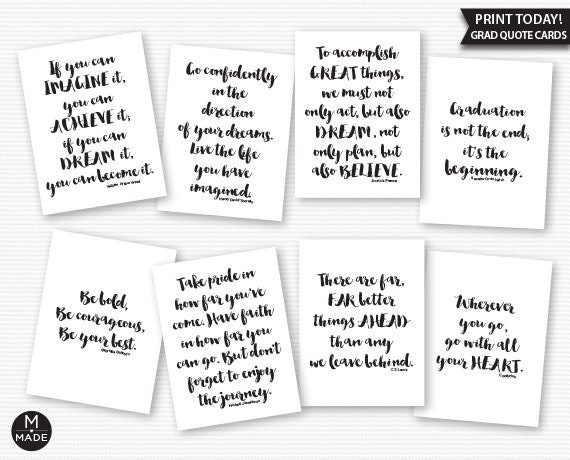 PRINT TODAY!
GRAD QUOTE CARDS
If you can
IMAGINE it,
you can
ACHIEVE it;
if you can
DREAM it,
you can become it.
William Arthur Ward
Go confidently
in the
direction
of your dreams.
Live the life
you have
imagined.
To accomplish
GREAT things,
we must not
only act, but also
DREAM, not
only plan, but
also BELIEVE.
Anatole France
Graduation
is not the end;
it's the
beginning.
Be bold,
Be courageous,
Be your best.
Take pride in
how far you've
come. Have faith
in how far you
can go. But don't
forget to enjoy
the journey.
There are far,
FAR better
things AHEAD
than any
we leave behind.
C.S Lewis
Wherever
you go,
go with all
your HEART.
Confucius
M
MADE